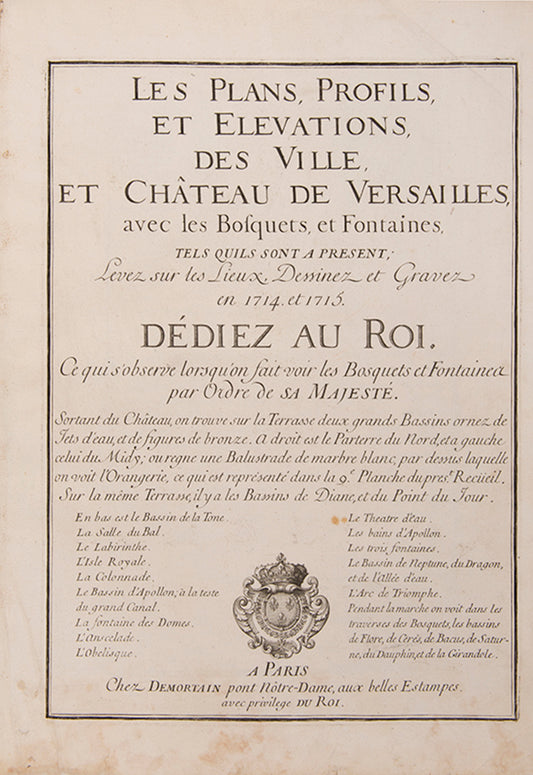 LES PLANS, PROFILS,
ET ELEVATIONS,
DES VILLE,
ET CHÂTEAU DE VERSAILLES,
avec les Bosquets, et Fontaines,
TELS QUILS SONT A PRESENT;
Levez sur les Lieux, Dessinez et Gravez
en 1714. et 1715.
DÉDIEZ AU ROI.
Ce qui s'observe lorsqu'on fait voir les Bosquets et Fontaines
par Ordre de SA MAJESTÉ.
Sortant du Château, on trouve sur la Terrasse deux grands Bassins ornez de
Jets d'eau, et de figures de bronze. A droit est le Parterre du Nord, et a gauche
celui du Midy; ou regne une Balustrade de marbre blanc, par dessus laquelle
on voit l'Orangerie, ce qui est representé dans la 9.e Planche du pres.t Recueil.
Sur la même Terrasse, il y a les Bassins de Diane, et du Point du Jour.
En bas est le Bassin de la Tone.
La Salle du Bal.
Le Labirinthe.
L'Isle Royale.
La Colonnade.
Le Bassin d'Apollon, à la teste
du grand Canal.
La fontaine des Domes.
L'Anscelade.
L'Obelisque.
Le Theatre d'eau.
Les bains d'Apollon.
Les trois fontaines.
Le Bassin de Neptune, du Dragon,
et de l'Allée d'eau.
L'Arc de Triomphe.
Pendant la marche on voit dans les
traverses des Bosquets, les bassins
de Flore, de Cerés, de Bacus, de Satur-
ne, du Dauphin, et de la Girandole.
A PARIS
Chez DEMORTAIN pont Nôtre-Dame, aux belles Estampes.
avec privilege DU ROI.